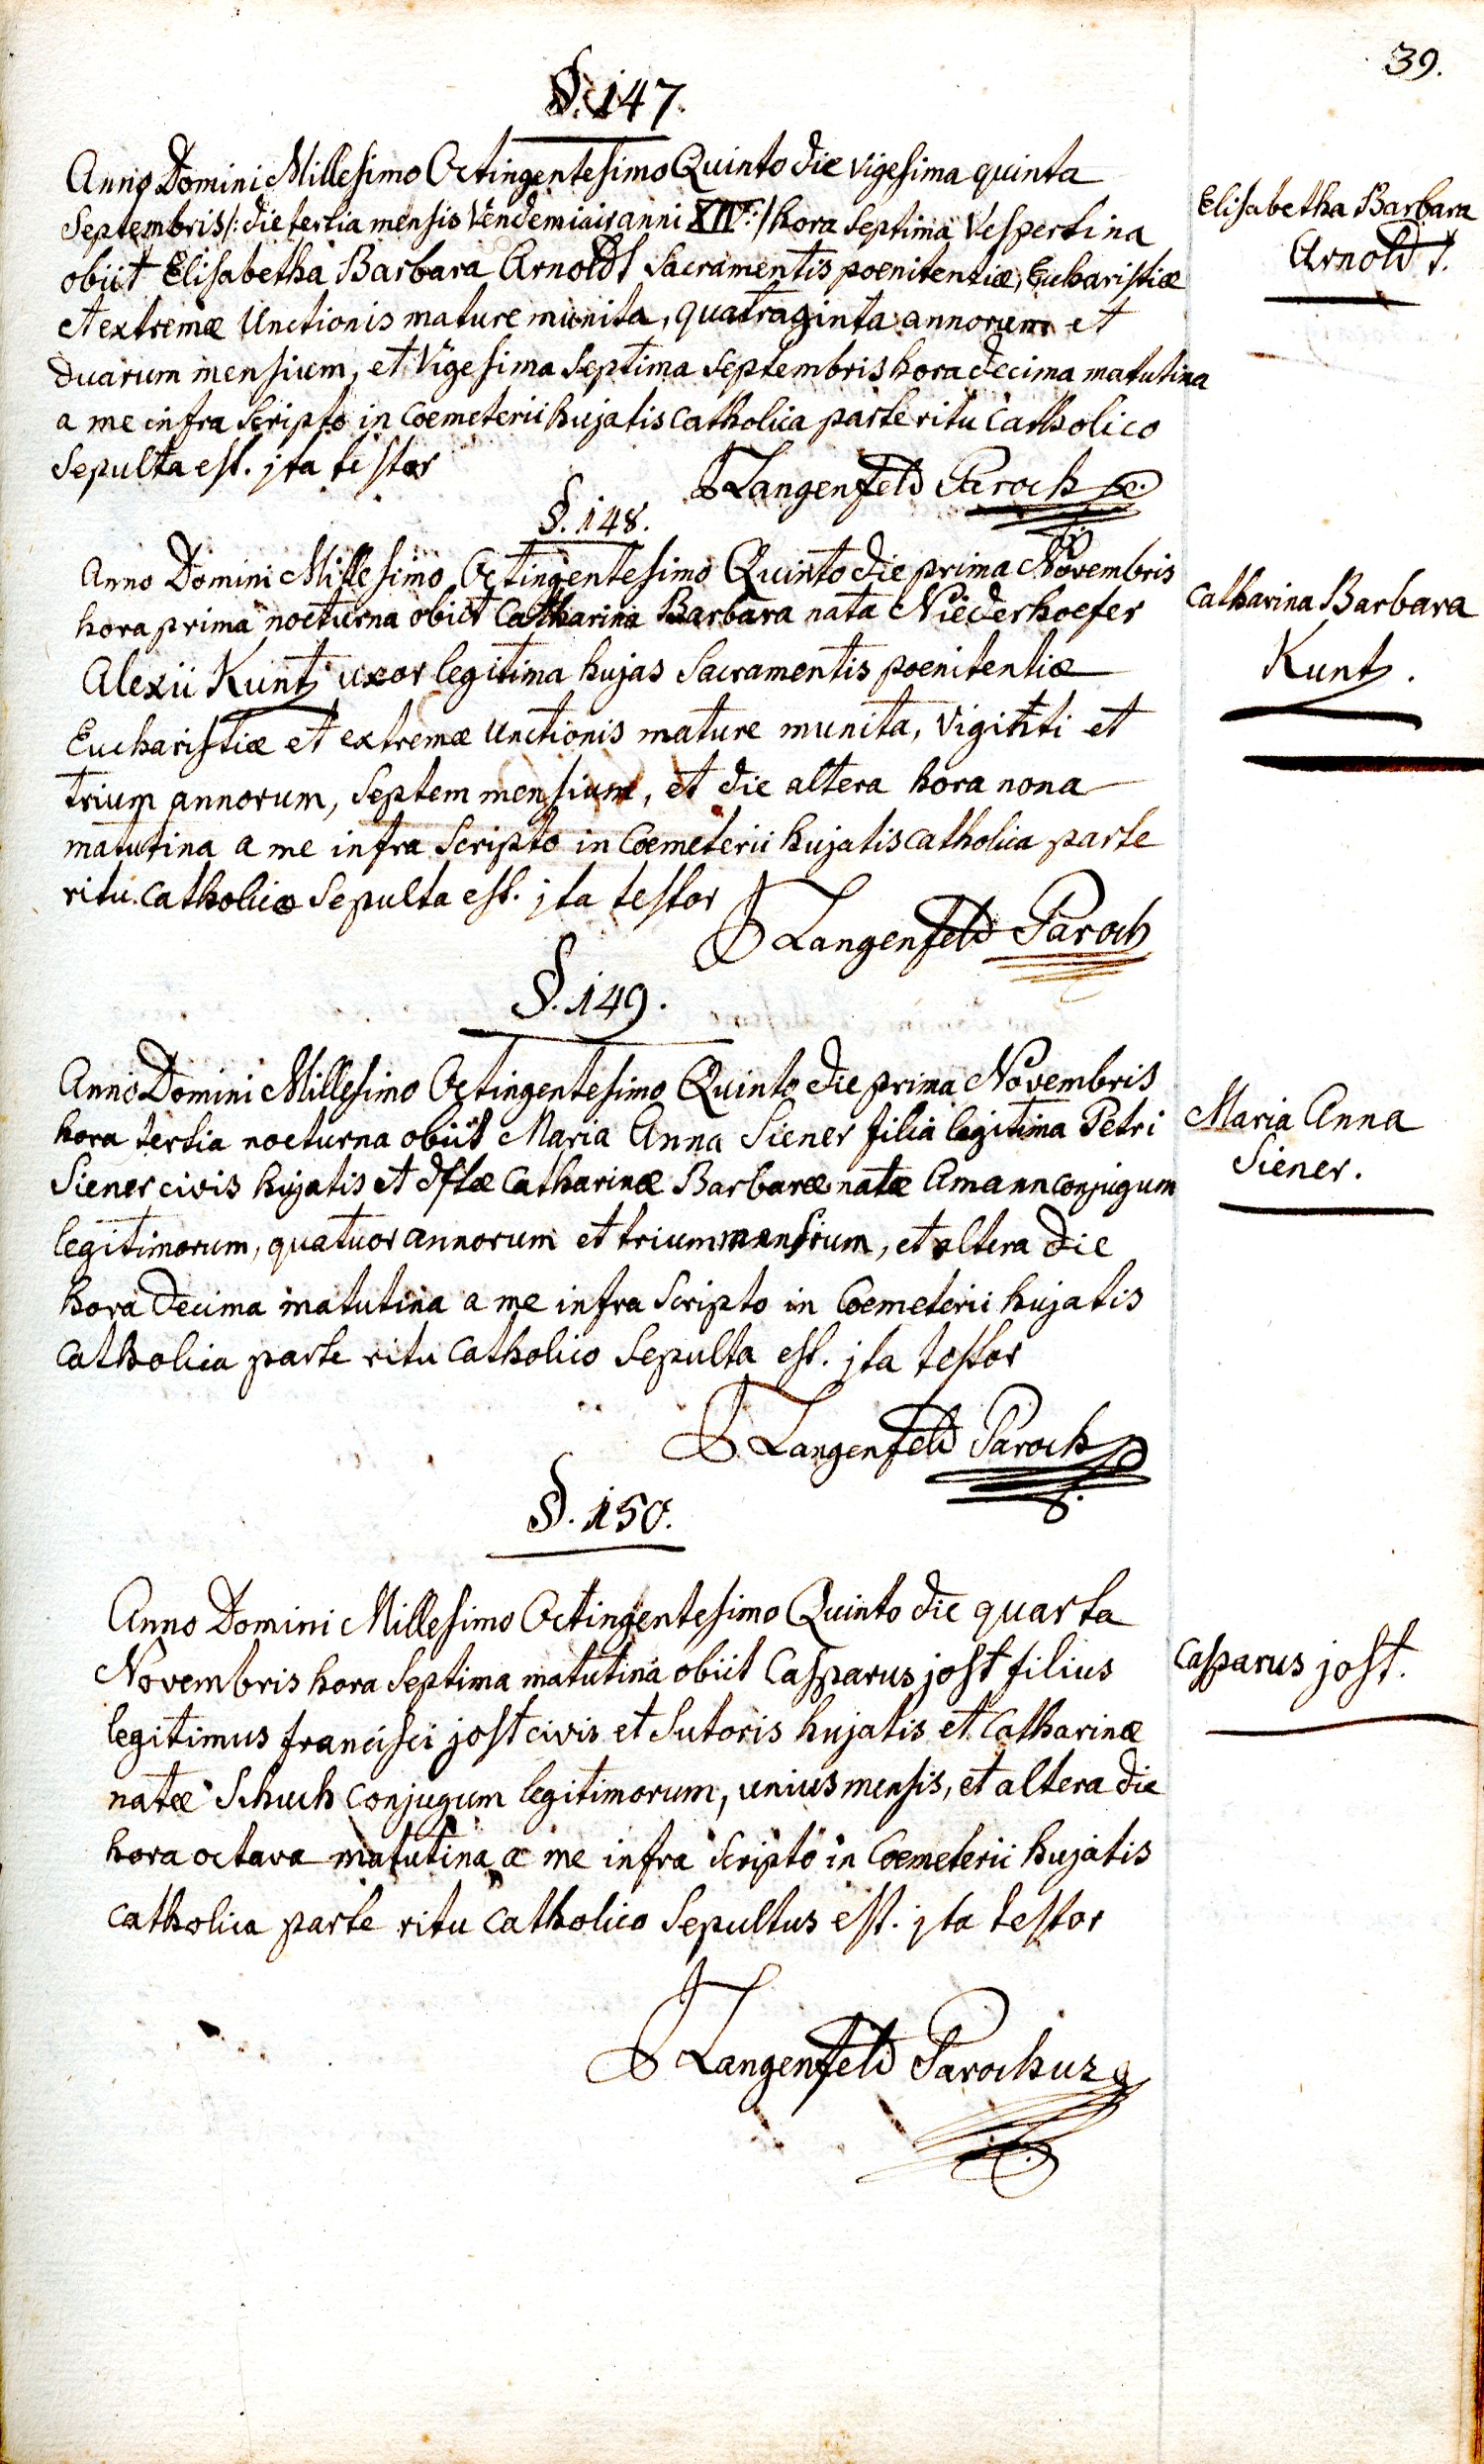 39.
§. 147.
Anno Domini Millesimo Octingentesimo Quinto die vigesima quinta
Septembris /: die tertia mensis Vendemiair anni XIV :/ hora Septima Vespertina
obiit Elisabetha Barbara Arnoldt Sacramentis poenitentiæ, Eucharistiæ
et extremæ Unctionis mature munita, quatraginta annorum et
duarum mensium, et Vigesima Septima Septembris hora decima matutina
a me infra Scripto in Coemeterii hujatis catholica parte ritu catholico
Sepulta est. jta testor
Langenfeld Paroch
§. 148.
Anno Domini Millesimo Octingentesimo Quinto die prima Novembris
hora prima nocturna obiit Catharina Barbara nata Niederhoefer
Alexii Kuntz uxor legitima hujas Sacramentis poenitentiæ
Eucharistiæ et extremæ Unctionis mature munita, Viginti et
trium annorum, Septem mensium, et die altera hora nona
matutina a me infra Scripto in Coemeterii hujatis catholica parte
ritu catholico Sepulta est. jta testor
Langenfeld Paroch
§. 149.
Anno Domini Millesimo Octingentesimo Quinto die prima Novembris
hora tertia nocturna obiit Maria Anna Siener filia legitima Petri
Siener civis hujatis et dftæ Catharinæ Barbaræ natæ Amann conjugum
legitimorum, quatuor annorum et trium mensium, et altera die
hora Decima matutina a me infra Scripto in Coemeterii hujatis
Catholica parte ritu Catholico Sepulta est. jta testor
Langenfeld Paroch
§. 150.
Anno Domini Millesimo Octingentesimo Quinto die quarta
Novembris hora Septima matutina obiit Casparus jost filius
legitimus francisci jost civis et Sutoris hujatis et Catharinæ
natæ Schuch conjugum legitimorum, unius mensis, et altera die
hora octava matutina a me infra Scripto in Coemeterii hujatis
catholica parte ritu catholico Sepultus est. jta testor
Langenfeld Parochus
Elisabetha Barbara
Arnoldt.
Catharina Barbara
Kuntz.
Maria Anna
Siener.
Casparus jost.